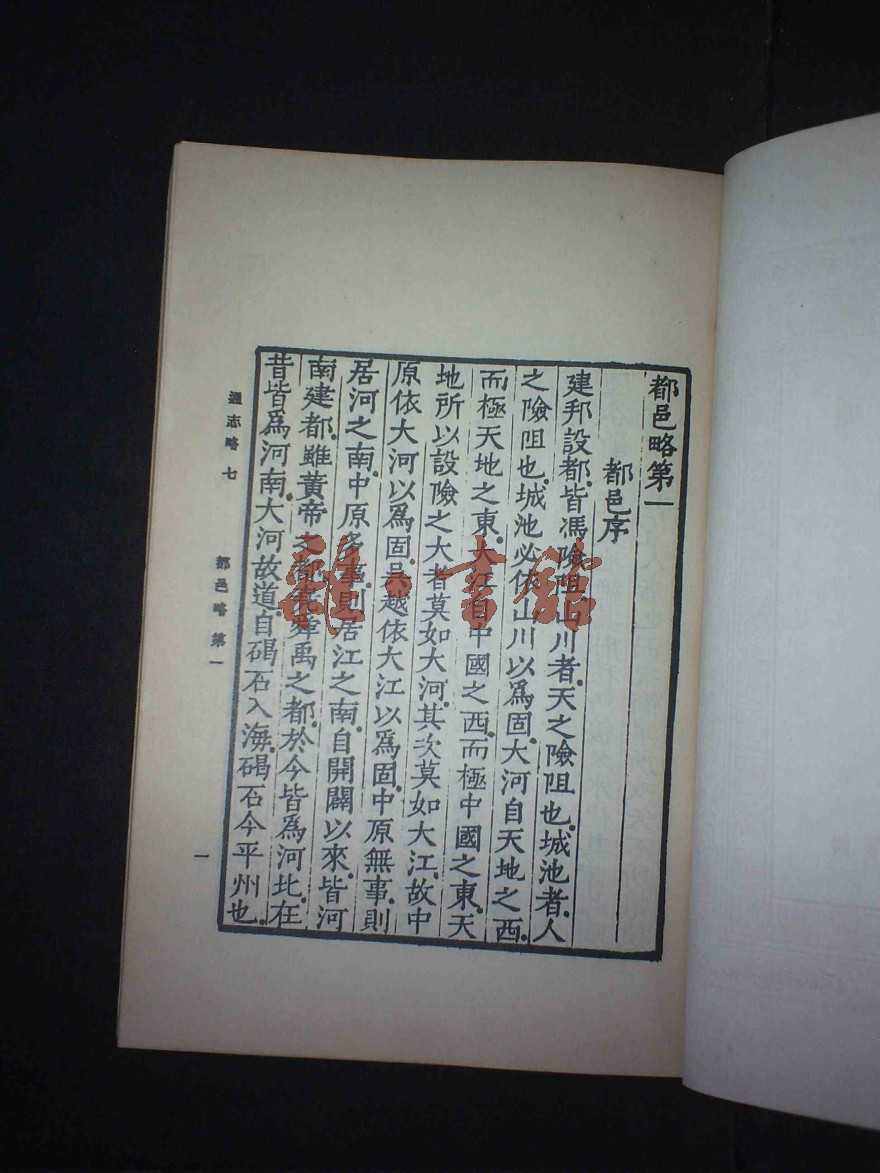 都邑略第一
都邑序
建邦設都.皆馮險阻.山川者.天之險阻也.城池者.人
之險阻也.城池必依山川以爲固.大河自天地之西.
而極天地之東.大江自中國之西.而極中國之東.天
地所以設險之大者莫如大河.其次莫如大江.故中
原依大河以爲固.吳越依大江以爲固.中原無事.則
居河之南.中原多事.則居江之南.自開闢以來.皆河
南建都.雖黃帝之都.堯舜禹之都.於今皆爲河北.在
昔皆爲河南.大河故道.自碣石入海.碣石今平州也.
通志略 七 都邑略 第一 一